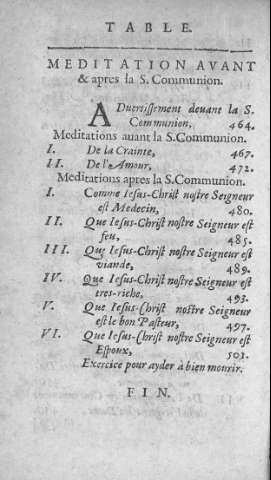 TABLE.
MEDITATION AVANT
& apres la S. Communion.
ADuertissement deuant la S.
Communion, 464.
Meditations auant la S. Communion.
I. De la Crainte, 467.
II. De l'Amour, 472.
Meditations apres la S. Communion.
I. Comme Iesus-Christ nostre Seigneur
est Medecin, 480.
II. Que Iesus-Christ nostre Seigneur est
feu, 485.
III. Que Iesus-Christ nostre Seigneur est
viande, 489.
IV. Que Iesus-Christ nostre Seigneur est
tres-riche, 493.
V. Que Iesus-Christ nostre Seigneur
est le bon Pasteur, 497.
VI. Que Iesus-Christ nostre Seigneur est
Espoux, 501.
Exercice pour ayder à bien mourir.
FIN.